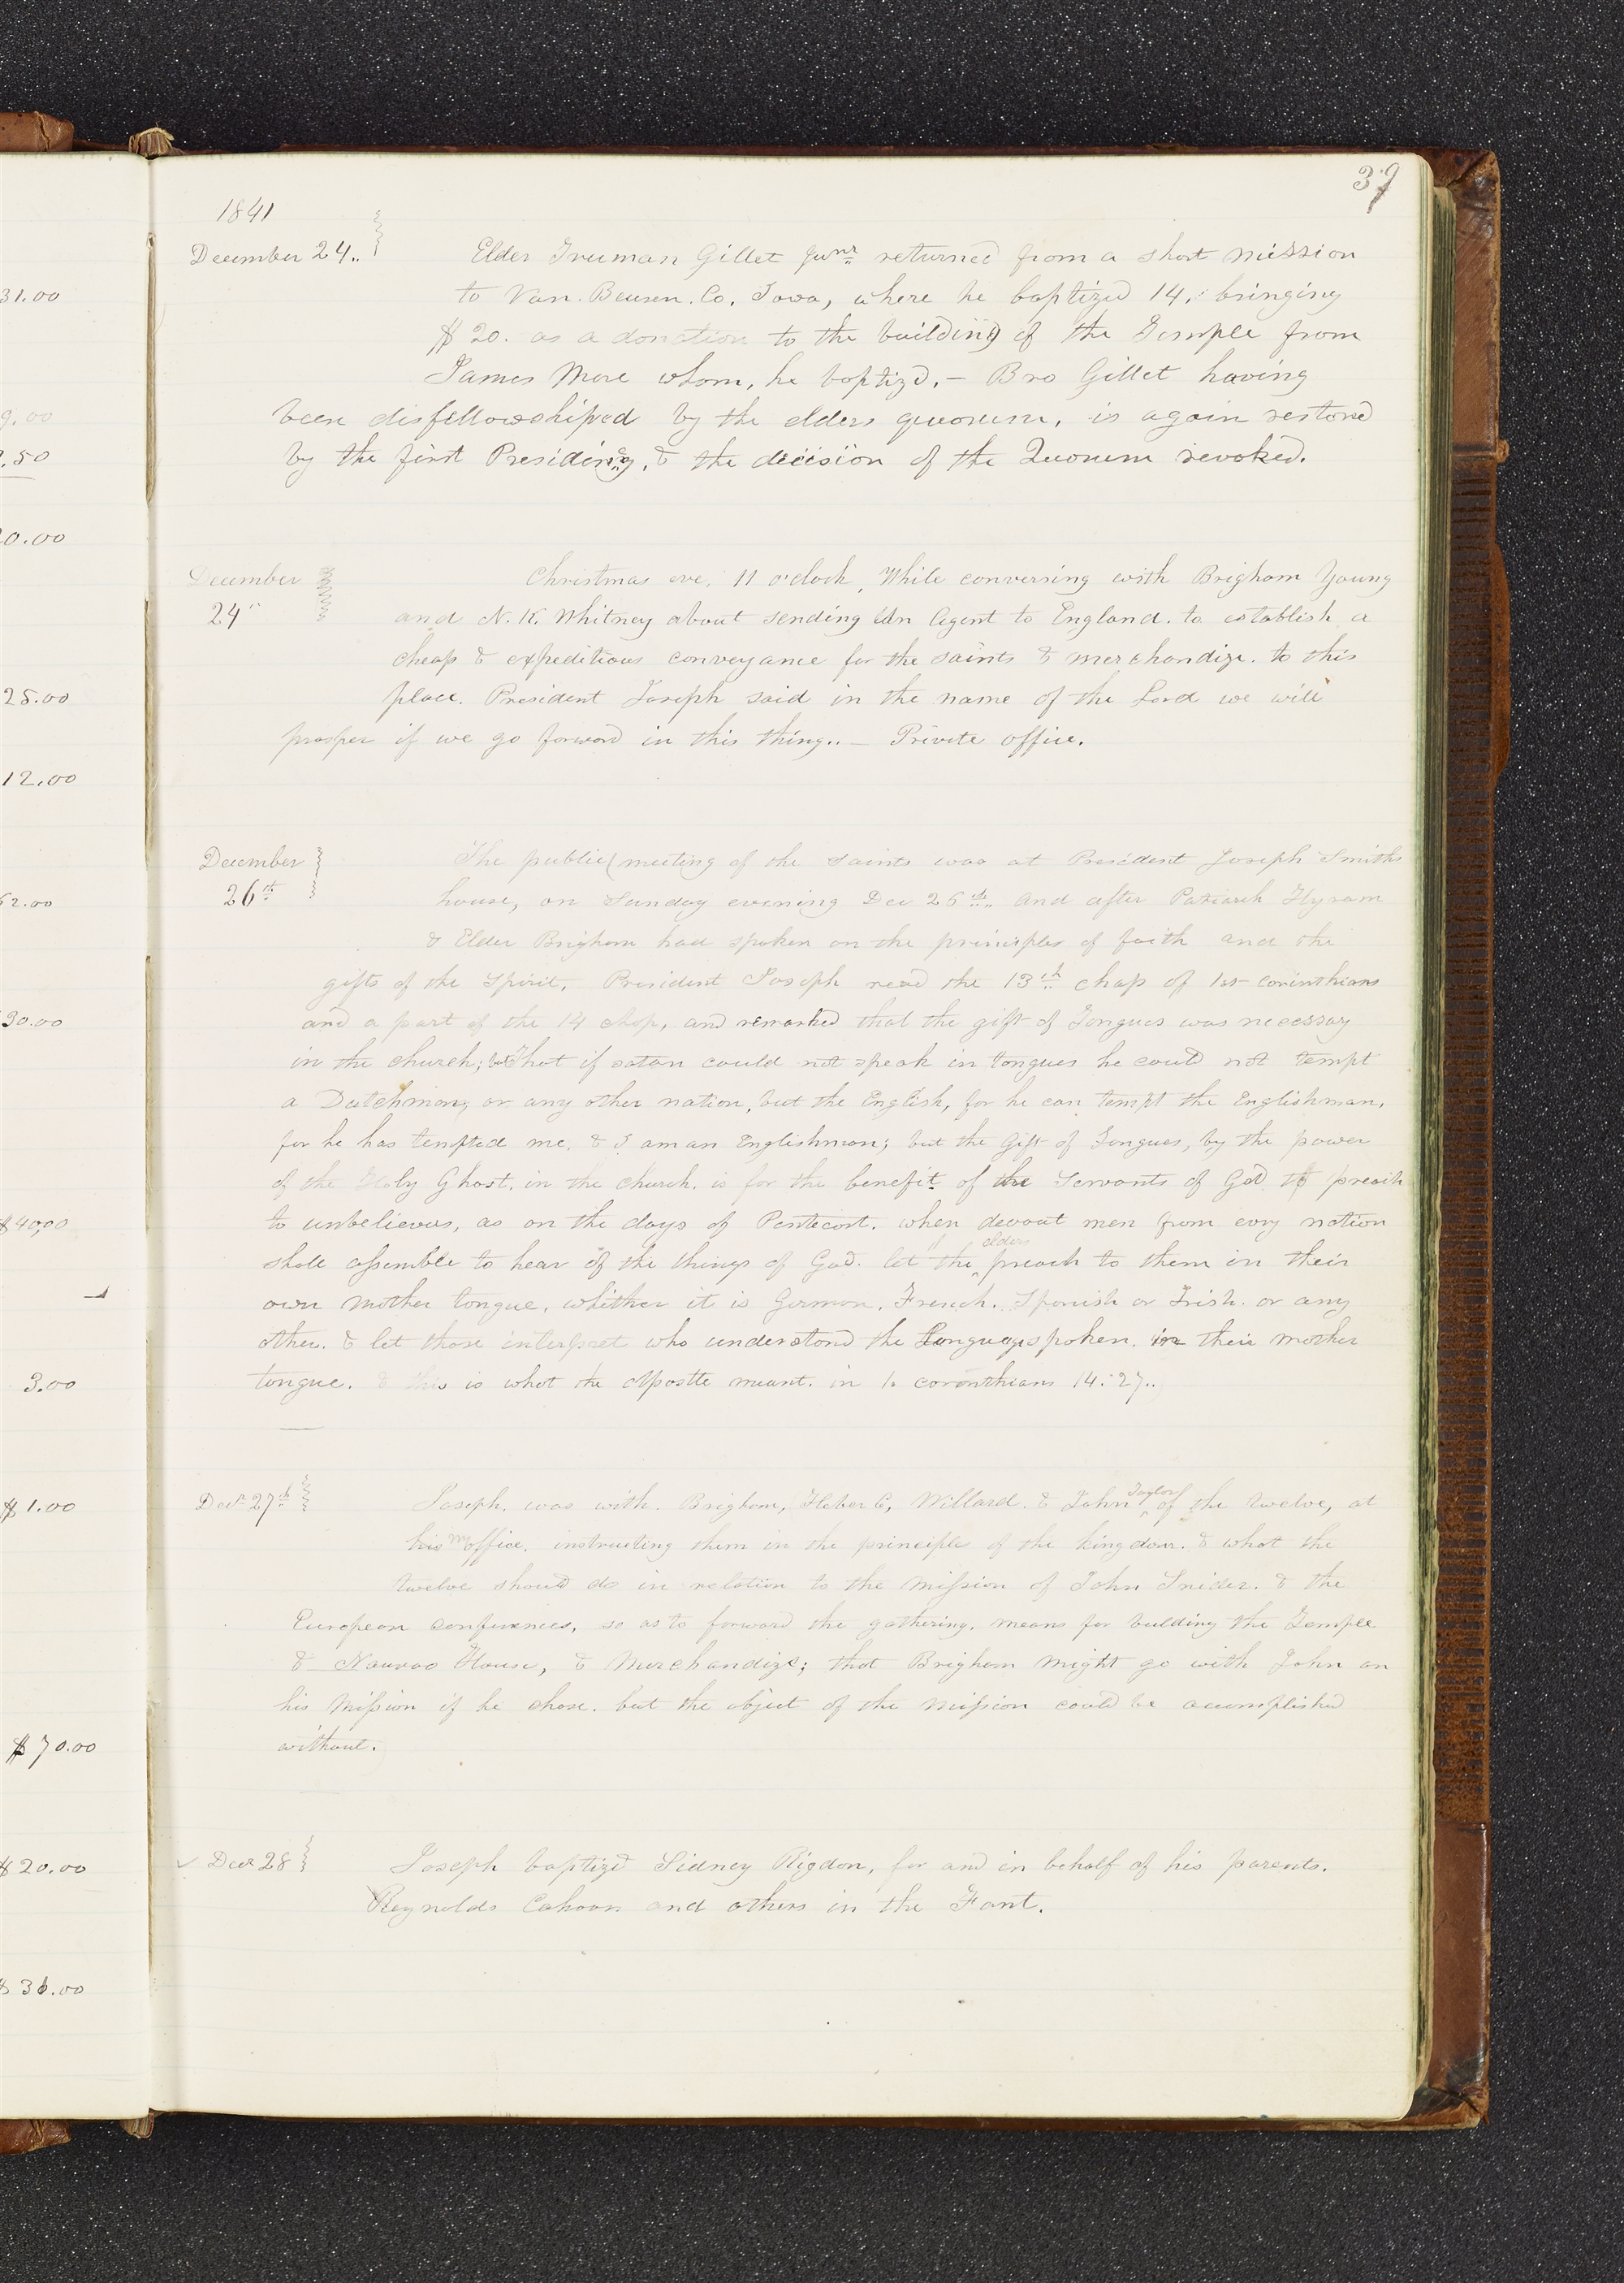 39
1841
December 24..
Elder Truman Gillet Junr. returned from a short mission
to Van. Beuren. Co. Iowa, where he baptized 14, bringing
$20. as a donation to the building of the Temple from
James More whom, he baptizd, — Bro Gillet having
been disfellowshiped by the elders quorum, is again restored
by the first Presidincy, & the decision of the Quorum revoked.
December
24"
Christmas eve, 11 o'clock, While conversing with Brigham Young
and N. K. Whitney about sending An Agent to England. to establish a
cheap & expeditious conveyance for the saints & merchandize. to this
place. President Joseph said in the name of the Lord we will
prosper if we go forward in this thing.. — Private office.
December
26th
The public meeting of the saints was at President Joseph Smiths
house, on Sunday evening Dec 26th.. And after Patriarch Hyram
& Elder Brigham had spoken on the principles of faith and the
gifts of the Spirit, President Joseph read the 13th chap of 1st corinthians
and a part of the 14 chap, and remarked that the gift of Tongues was necessary
in the church; but that if satan could not speak in tongues he could not tempt
a Dutchman, or any other nation, but the English, for he can tempt the Englishman,
for he has tempted me, & I am an Englishman; but the Gift of Tongues, by the power
of the Holy Ghost. in the church. is for the benefit of the Servants of God to preach
to unbelievers, as on the days of Pentecost. when devout men from evry nation
shall assemble to hear of the things of God. let the elders preach to them in their
own mother tongue, whither it is German, French. Spanish or Irish. or any
other. & let those interpret who understand the Languages spoken. in their mother
tongue. & this is what the Apostle meant. in 1. corinthians 14:27..
Decr 27th
Joseph. was with. Brigham, Heber C, Willard. & John Taylor of the twelve, at
his my office. instructing them in the principles of the kingdom. & what the
twelve should do in relation to the Mission of John Snider. & the
European conferences, so as to forward the gathering. means for building the Temple
& Nauvoo House, & Merchandize; that Brigham might go with John on
his Mission if he chose. but the object of the mission could be accomplished
without.
Decr 28
Joseph baptizd Sidney Rigdon, for and in behalf of his parents.
Reynolds Cahoon and others in the Font.
31.00
9.00
.50
0.00
25.00
12.00
62.00
30.00
$40.00
3.00
$1.00
$70.00
$20.00
$36.00